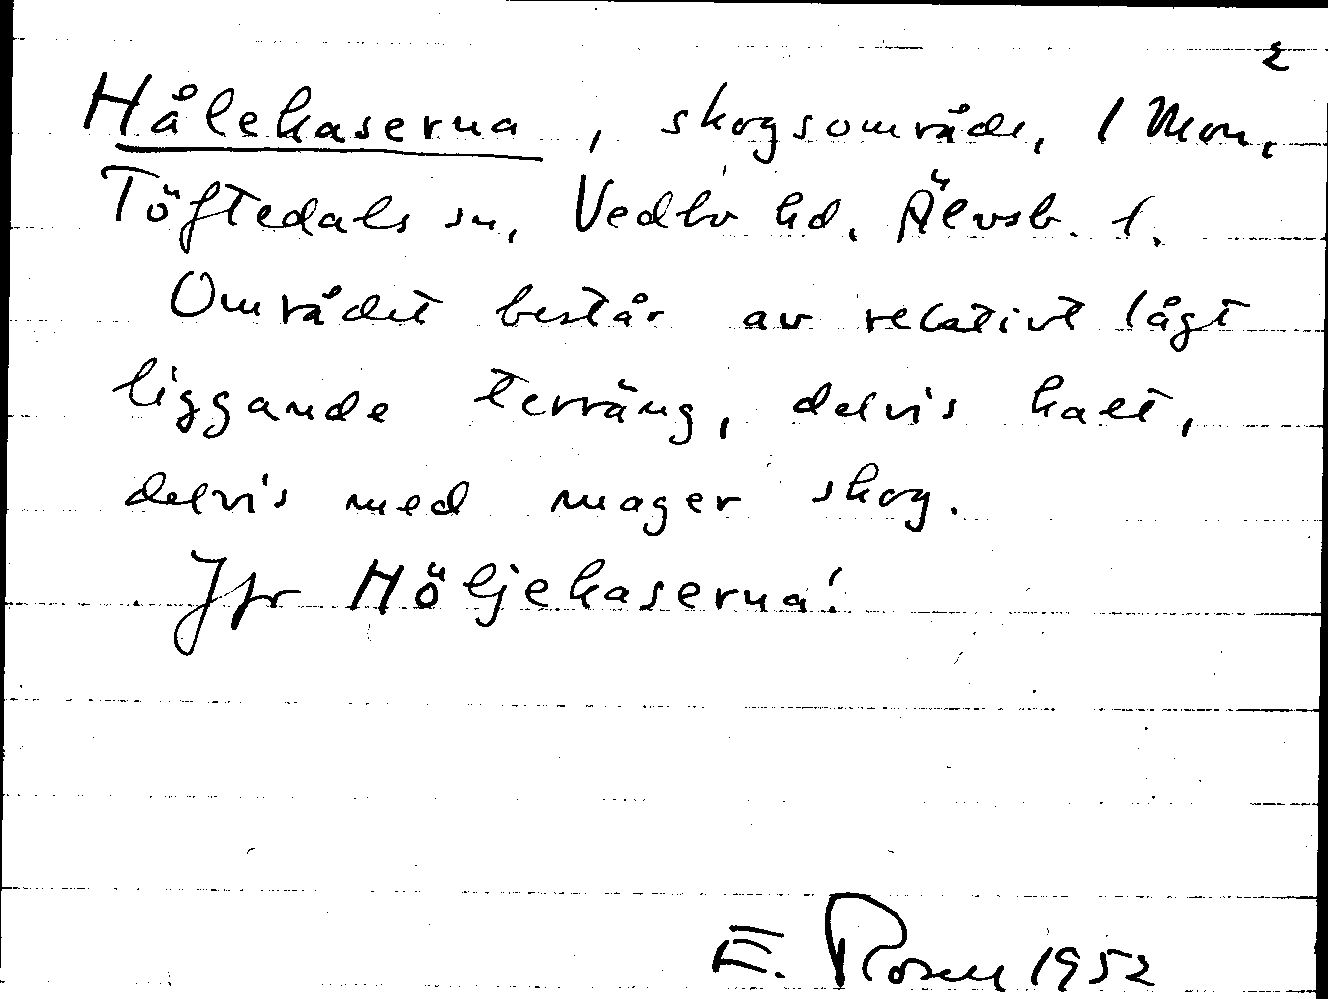 2
Hålekaserna, skogsområde, 1 Mon,
Töftedals sn, Vedbo hd, Älvsb. l.
Området består av relativt lågt
liggande terräng, delvis kalt,
delvis med mager skog.
Jfr Höljekaserna!
E. Rosen 1952